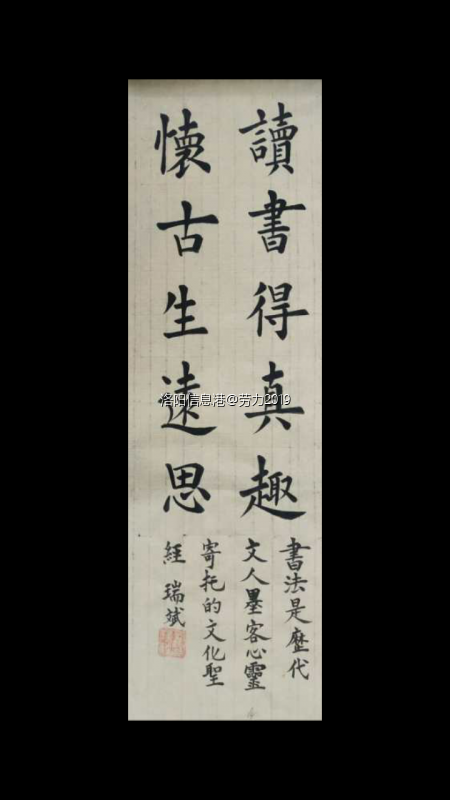 讀書得真趣
懷古生遠思
書法是歷代
文人墨客心靈
寄托的文化聖
經 瑞斌
洛阳信息港@劳力2019